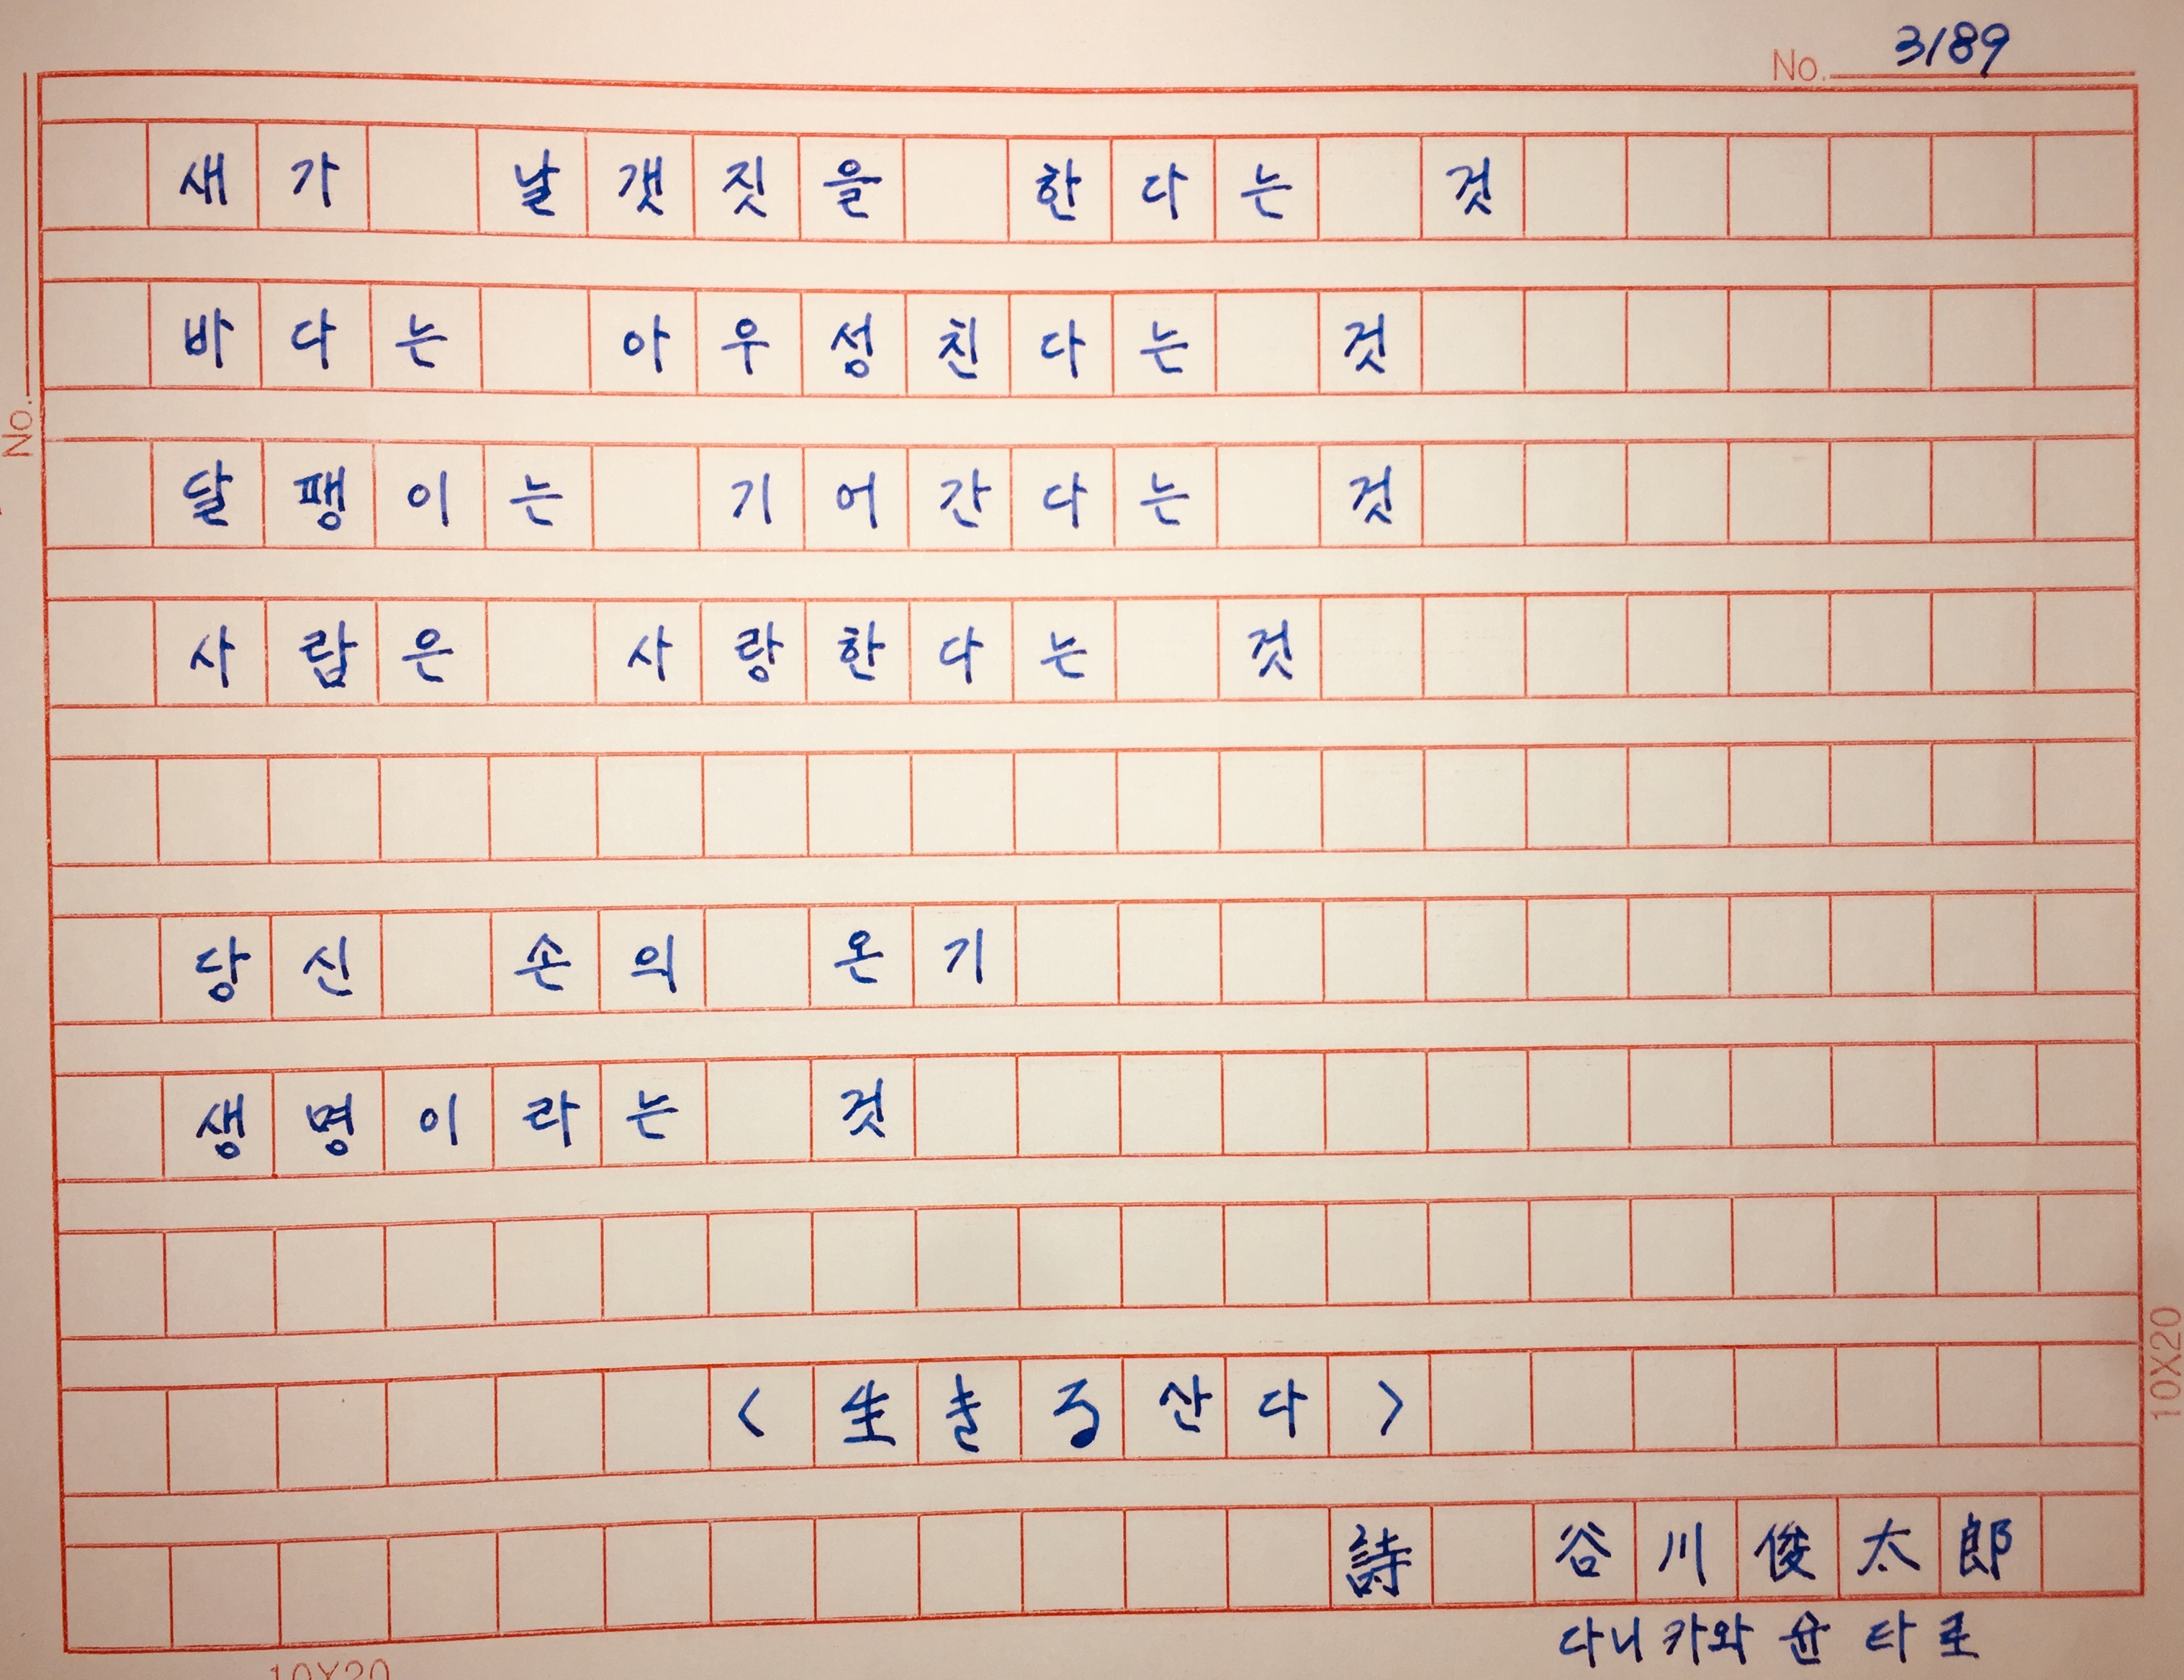 No. 3189
새가 날갯짓을 한다는 것
바다는 아우성친다는 것
No.
달팽이는 기어간다는 것
사람은 사랑한다는 것
당신 손의 온기
생명이라는 것
<生きる산다>
詩 谷川俊太郎
다니카와 슌타로
10X20
10X20